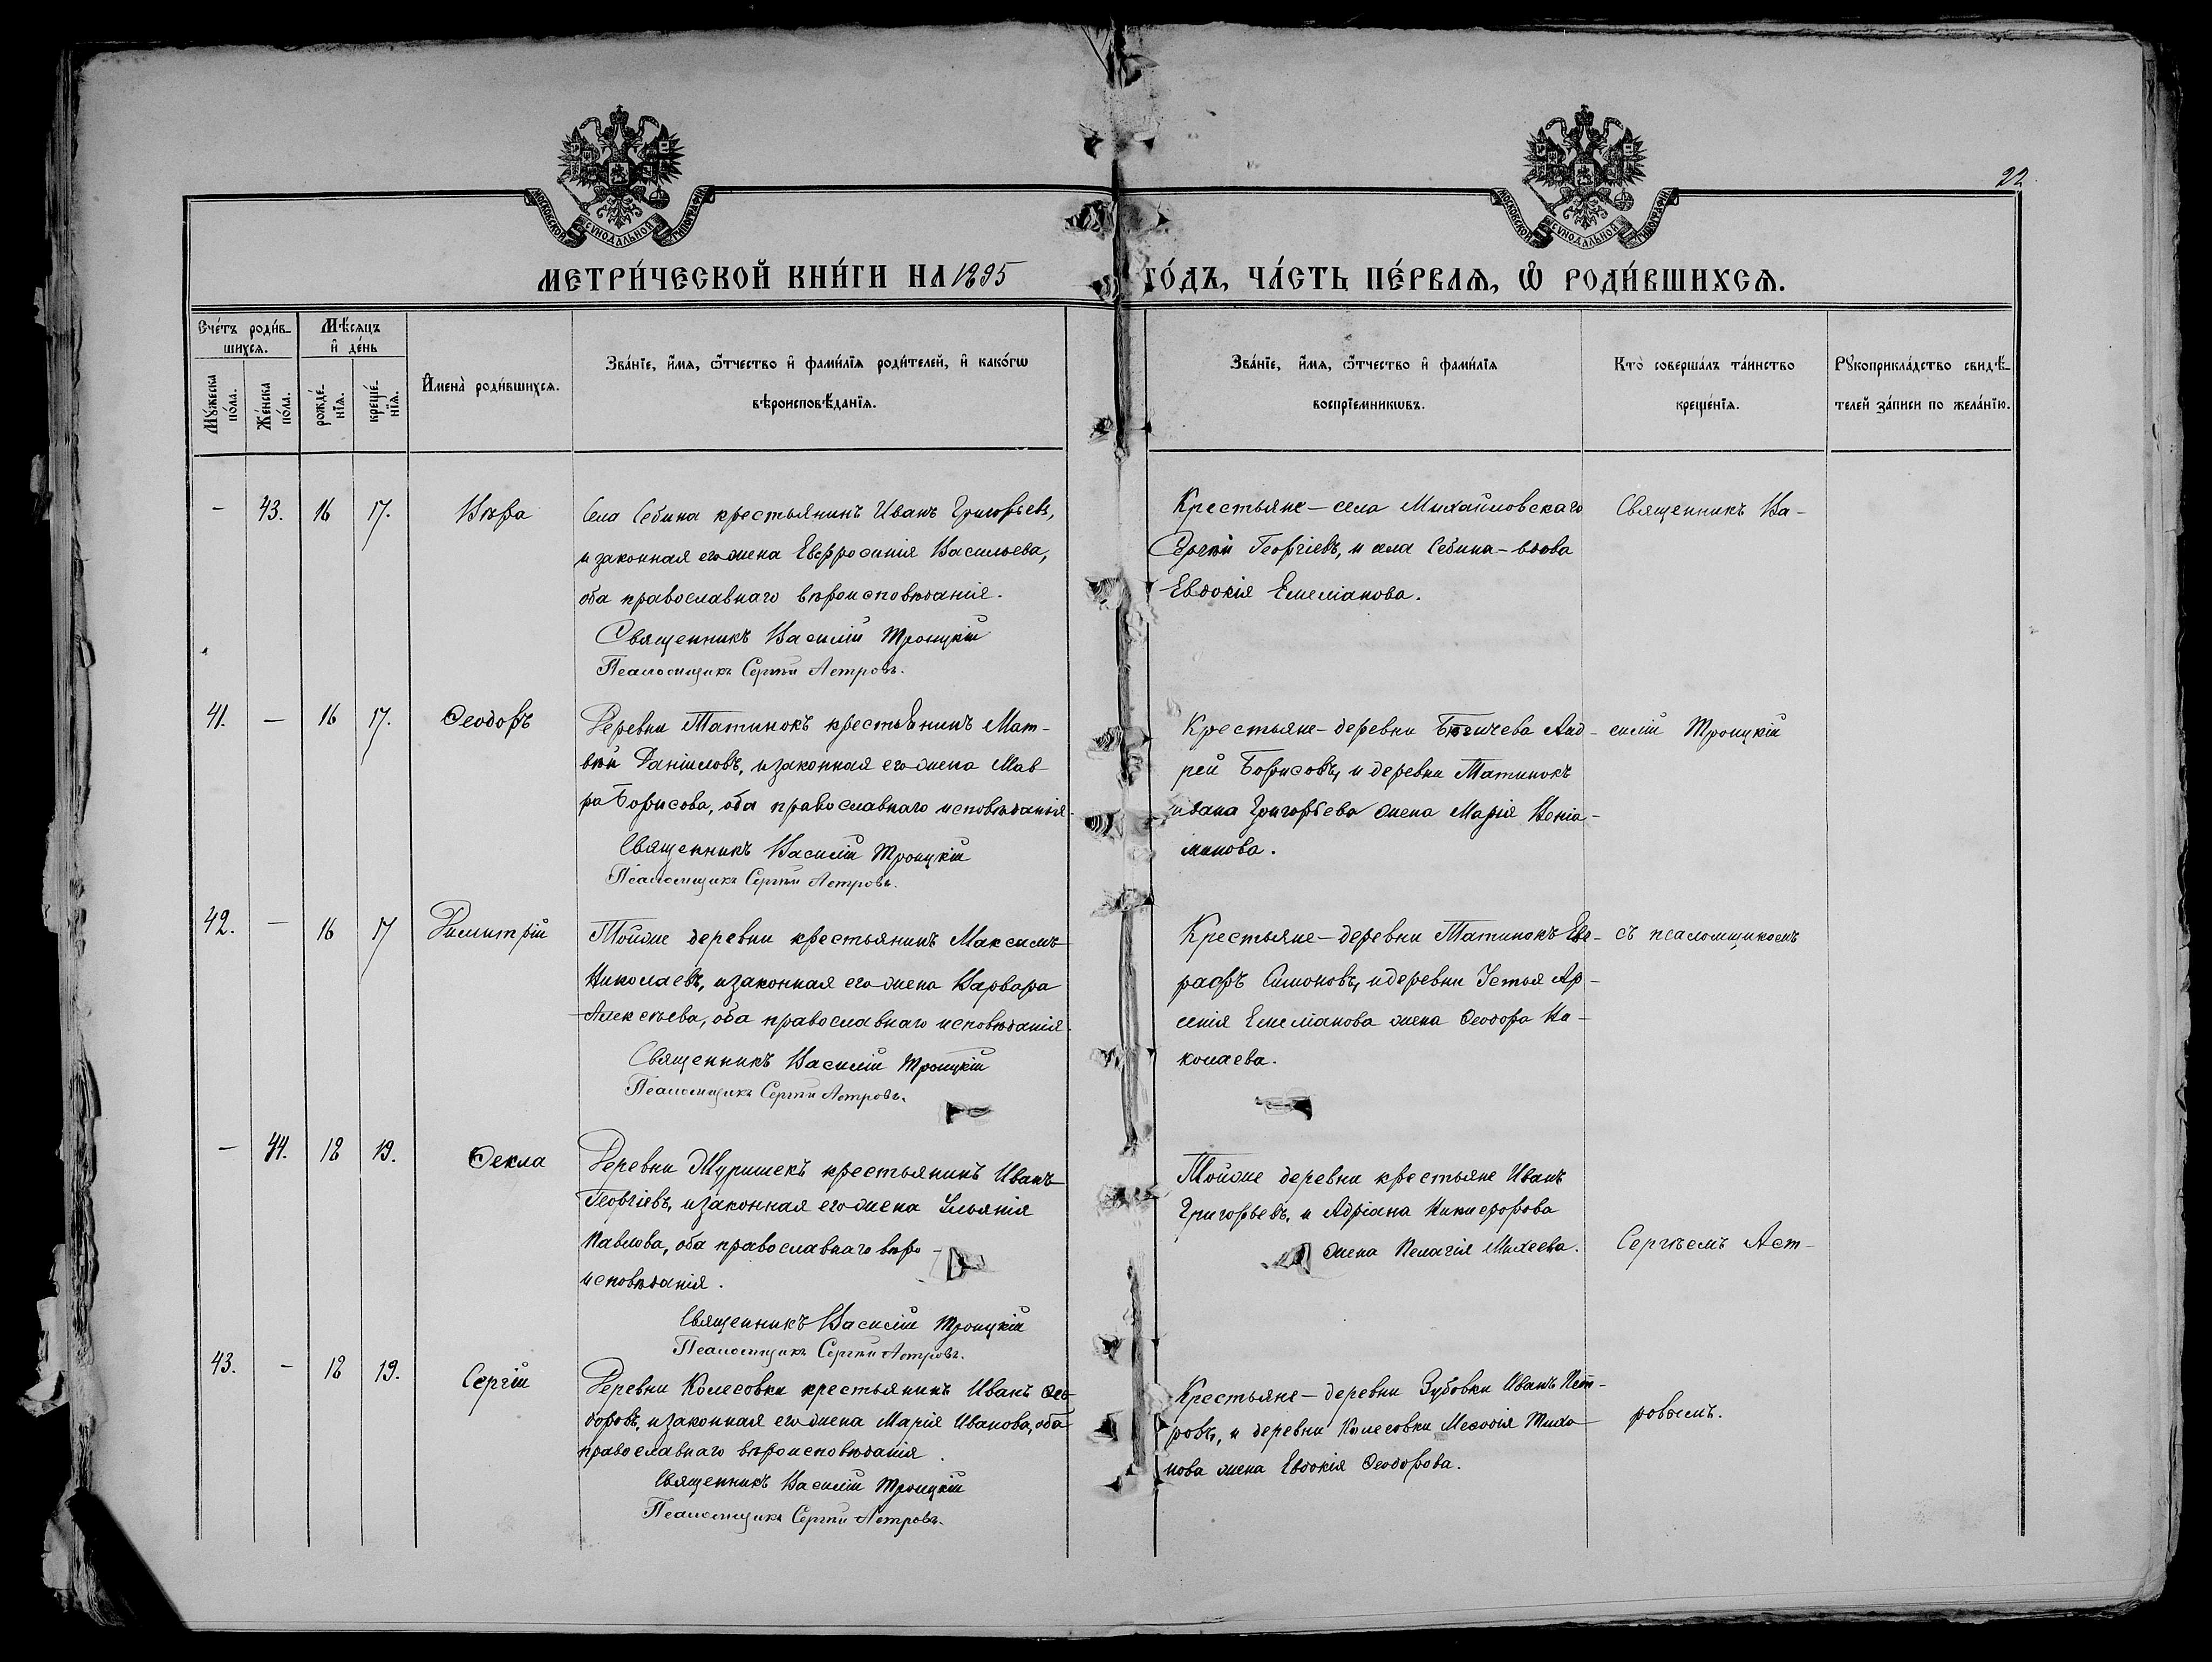 22
МОСКОВСКОЙ СѴНОДАЛЬНОЙ ТИПОГРАФІИ
МОСКОВСКОЙ СѴНОДАЛЬНОЙ ТИПОГРАФІИ
МЕТРИ́ЧЕСКОЙ КНИ́ГИ НА 1895
ГО́ДЪ, ЧА́СТЬ ПЕ́РВАѦ, Ѡ҆ РОДИ́ВШИХСѦ.
Сче́тъ роди́в-
шихсѧ.
Мѣ́сѧцъ
и҆ де́нь
Мꙋ́жеска
по́ла.
Же́нска
по́ла.
рожде́-
нїѧ.
креще́-
нїѧ.
И҆мена̀ роди́вшихсѧ.
Зва́нїе, и҆́мѧ, ѻ҆́тчество и҆ фами́лїѧ роди́телей, и҆ како́гѡ
вѣроисповѣ́данїѧ.
Зва́нїе, и҆́мѧ, ѻ҆́тчество и҆ фами́лїѧ
воспрїе́мникѡвъ.
Кто̀ соверша́лъ та́инство
креще́нїѧ.
Рꙋкоприкла́дство свидѣ́-
телей за́писи по жела́нїю.
- 43. 16 17. Вѣра
Села Себина крестьянинъ Иванъ Григорьевъ,
и законная его жена Евфросинія Васильева,
оба православнаго вѣроисповѣданія.
Священникъ Василій Троицкій
Псаломщикъ Сергѣй Астровъ.
Крестьяне - села Михайловскаго
Сергѣй Георгіевъ, и села Себина - вдова
Евдокія Емеліанова.
Священникъ Ва-
41. - 16 17. Ѳеодоръ
Деревни Татинокъ крестьянинъ Мат-
вѣй Даніиловъ, и законная его жена Мав
ра Борисова, оба православнаго исповѣданія.
Священникъ Василій Троицкій
Псаломщикъ Сергѣй Астровъ.
Крестьяне - деревни Бѣгичева Анд-
рей Борисовъ, и деревни Татинокъ
Ивана Григорьева жена Марія Веніа-
минова.
силій Троицкій
42. - 16 17 Димитрій
Тойже деревни крестьянинъ Максимъ
Николаевъ, и законная его жена Варвара
Алексѣева, оба православнаго исповѣданія.
Священникъ Василій Троицкій
Псаломщикъ Сергѣй Астровъ.
Крестьяне - деревни Татинокъ Евг-
рафъ Симоновъ, и деревни Устья Ар-
сенія Емеліанова жена Ѳеодора Ни-
колаева.
съ псаломщикомъ
- 44. 18 19. Ѳекла
Деревни Муришекъ крестьянинъ Иванъ
Георгіевъ, и законная его жена Ульянія
Павлова, оба православнаго вѣро-
исповѣданія.
Священникъ Василій Троицкій
Псаломщикъ Сергѣй Астровъ.
Тойже деревни крестьяне Иванъ
Григорьевъ, и Адріана Никифорова
жена Пелагія Михеева.
Сергѣемъ Аст-
43. - 18 19. Сергій
Деревни Колесовки крестьянинъ Иванъ Ѳео-
доровъ, и законная его жена Марія Иванова, оба
православнаго вѣроисповѣданія.
Священникъ Василій Троицкій
Псаломщикъ Сергѣй Астровъ.
Крестьяне - деревни Зубовки Иванъ Пет-
ровъ, и деревни Колесовки Меѳодія Тихо
нова жена Евдокія Ѳеодорова.
ровымъ.